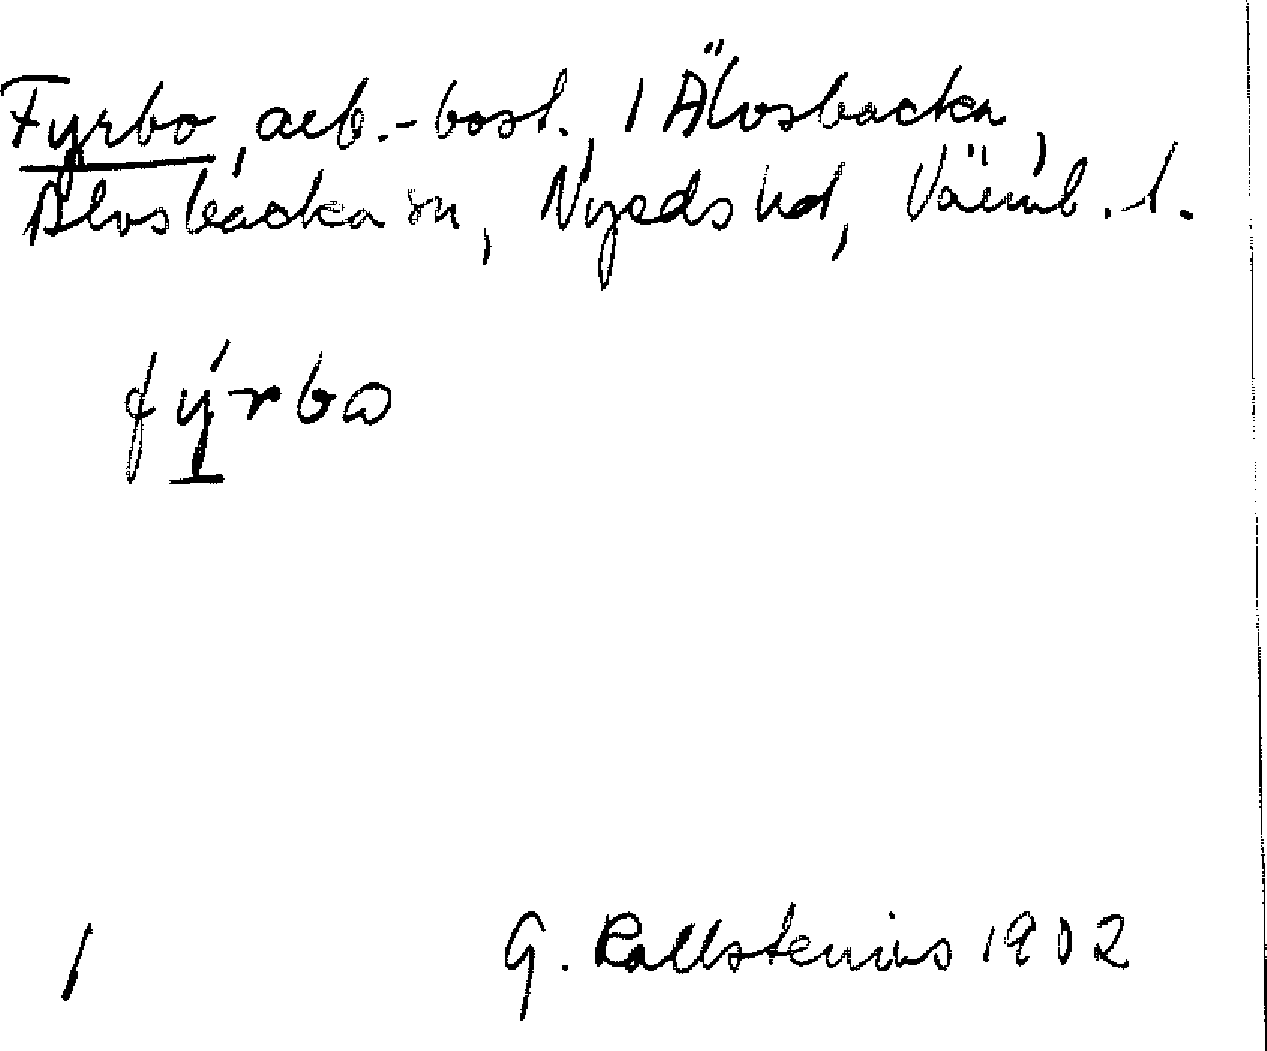 Fyrbo, arb.-bost., i Älvsbacka,
Älvsbacka sn, Nyeds hd, Värml. l.
fýrbo
1
G. Kallstenius 1902